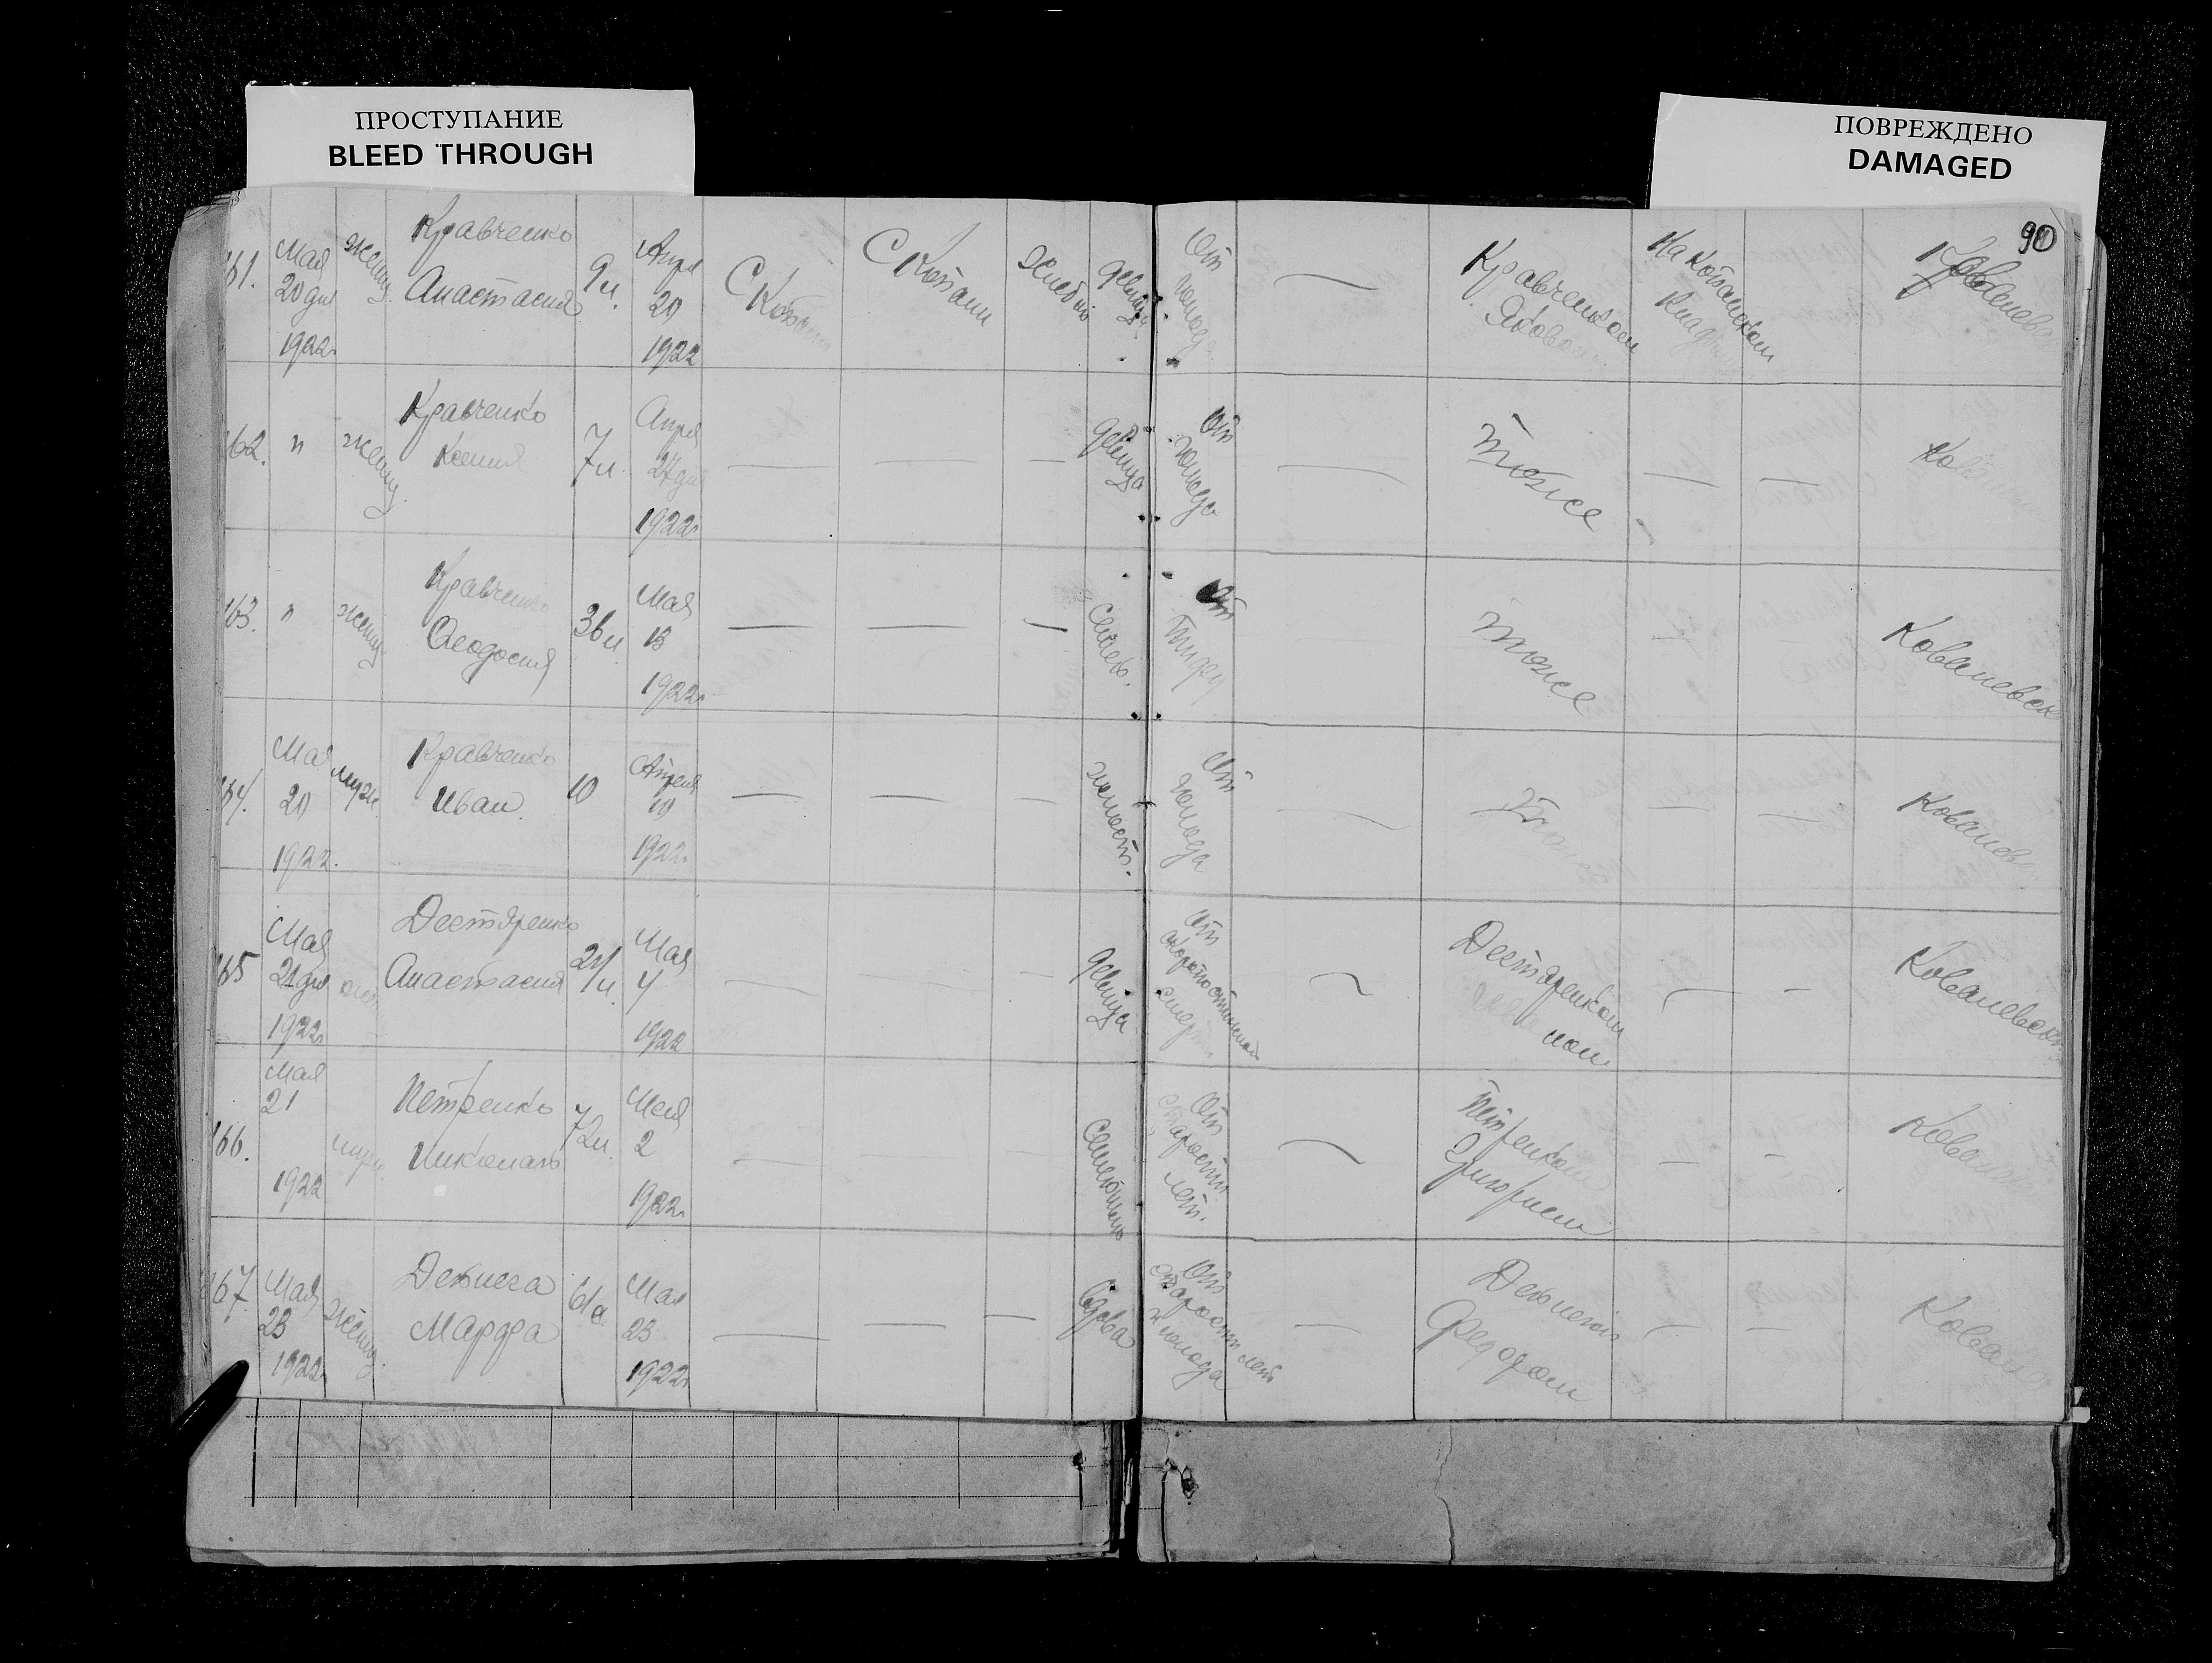 ПРОСТУПАНИЕ
BLEED THROUGH
ПОВРЕЖДЕНО
DAMAGED
90
161. Мая 20 дня 1922г. женщ. Кравченко Анастасия 9л. Апр 20 1922 С Котани С Котани девица От голода — Кравченком Яковом На Котанском Ковалевс
162. " женщ. Кравченко Ксения 7л. Апре 27 дня 1922г. — — — девица От голода — тоже — — Ков
163. " женщ Кравченко Феодосия 36л Мая 13 1922г. — — — Семей. От тифу тоже — Ковалевск
164. Мая 20 1922. муж. Кравченко Иван. 10 Апреля 10 1922г. — — — холост. От голода — тоже — — Ковалевс
165 Мая 21 дня 1922г Дегтяренко Анастасия 21л. Мая 4 1922 — — — девица От скоропостижной смерти — Дегтяренком — — Ковалевск
166. Мая 21 1922 муж Петренко Николай 72л. Мая 2 1922г. — — — От старости лет. — Петренком Григорием — — Ковале
167. Мая 23 1922г. женщ. Марфа 61л Мая 23 1922г. — — — вдова От старости лет и голода — Федором — — Ковал